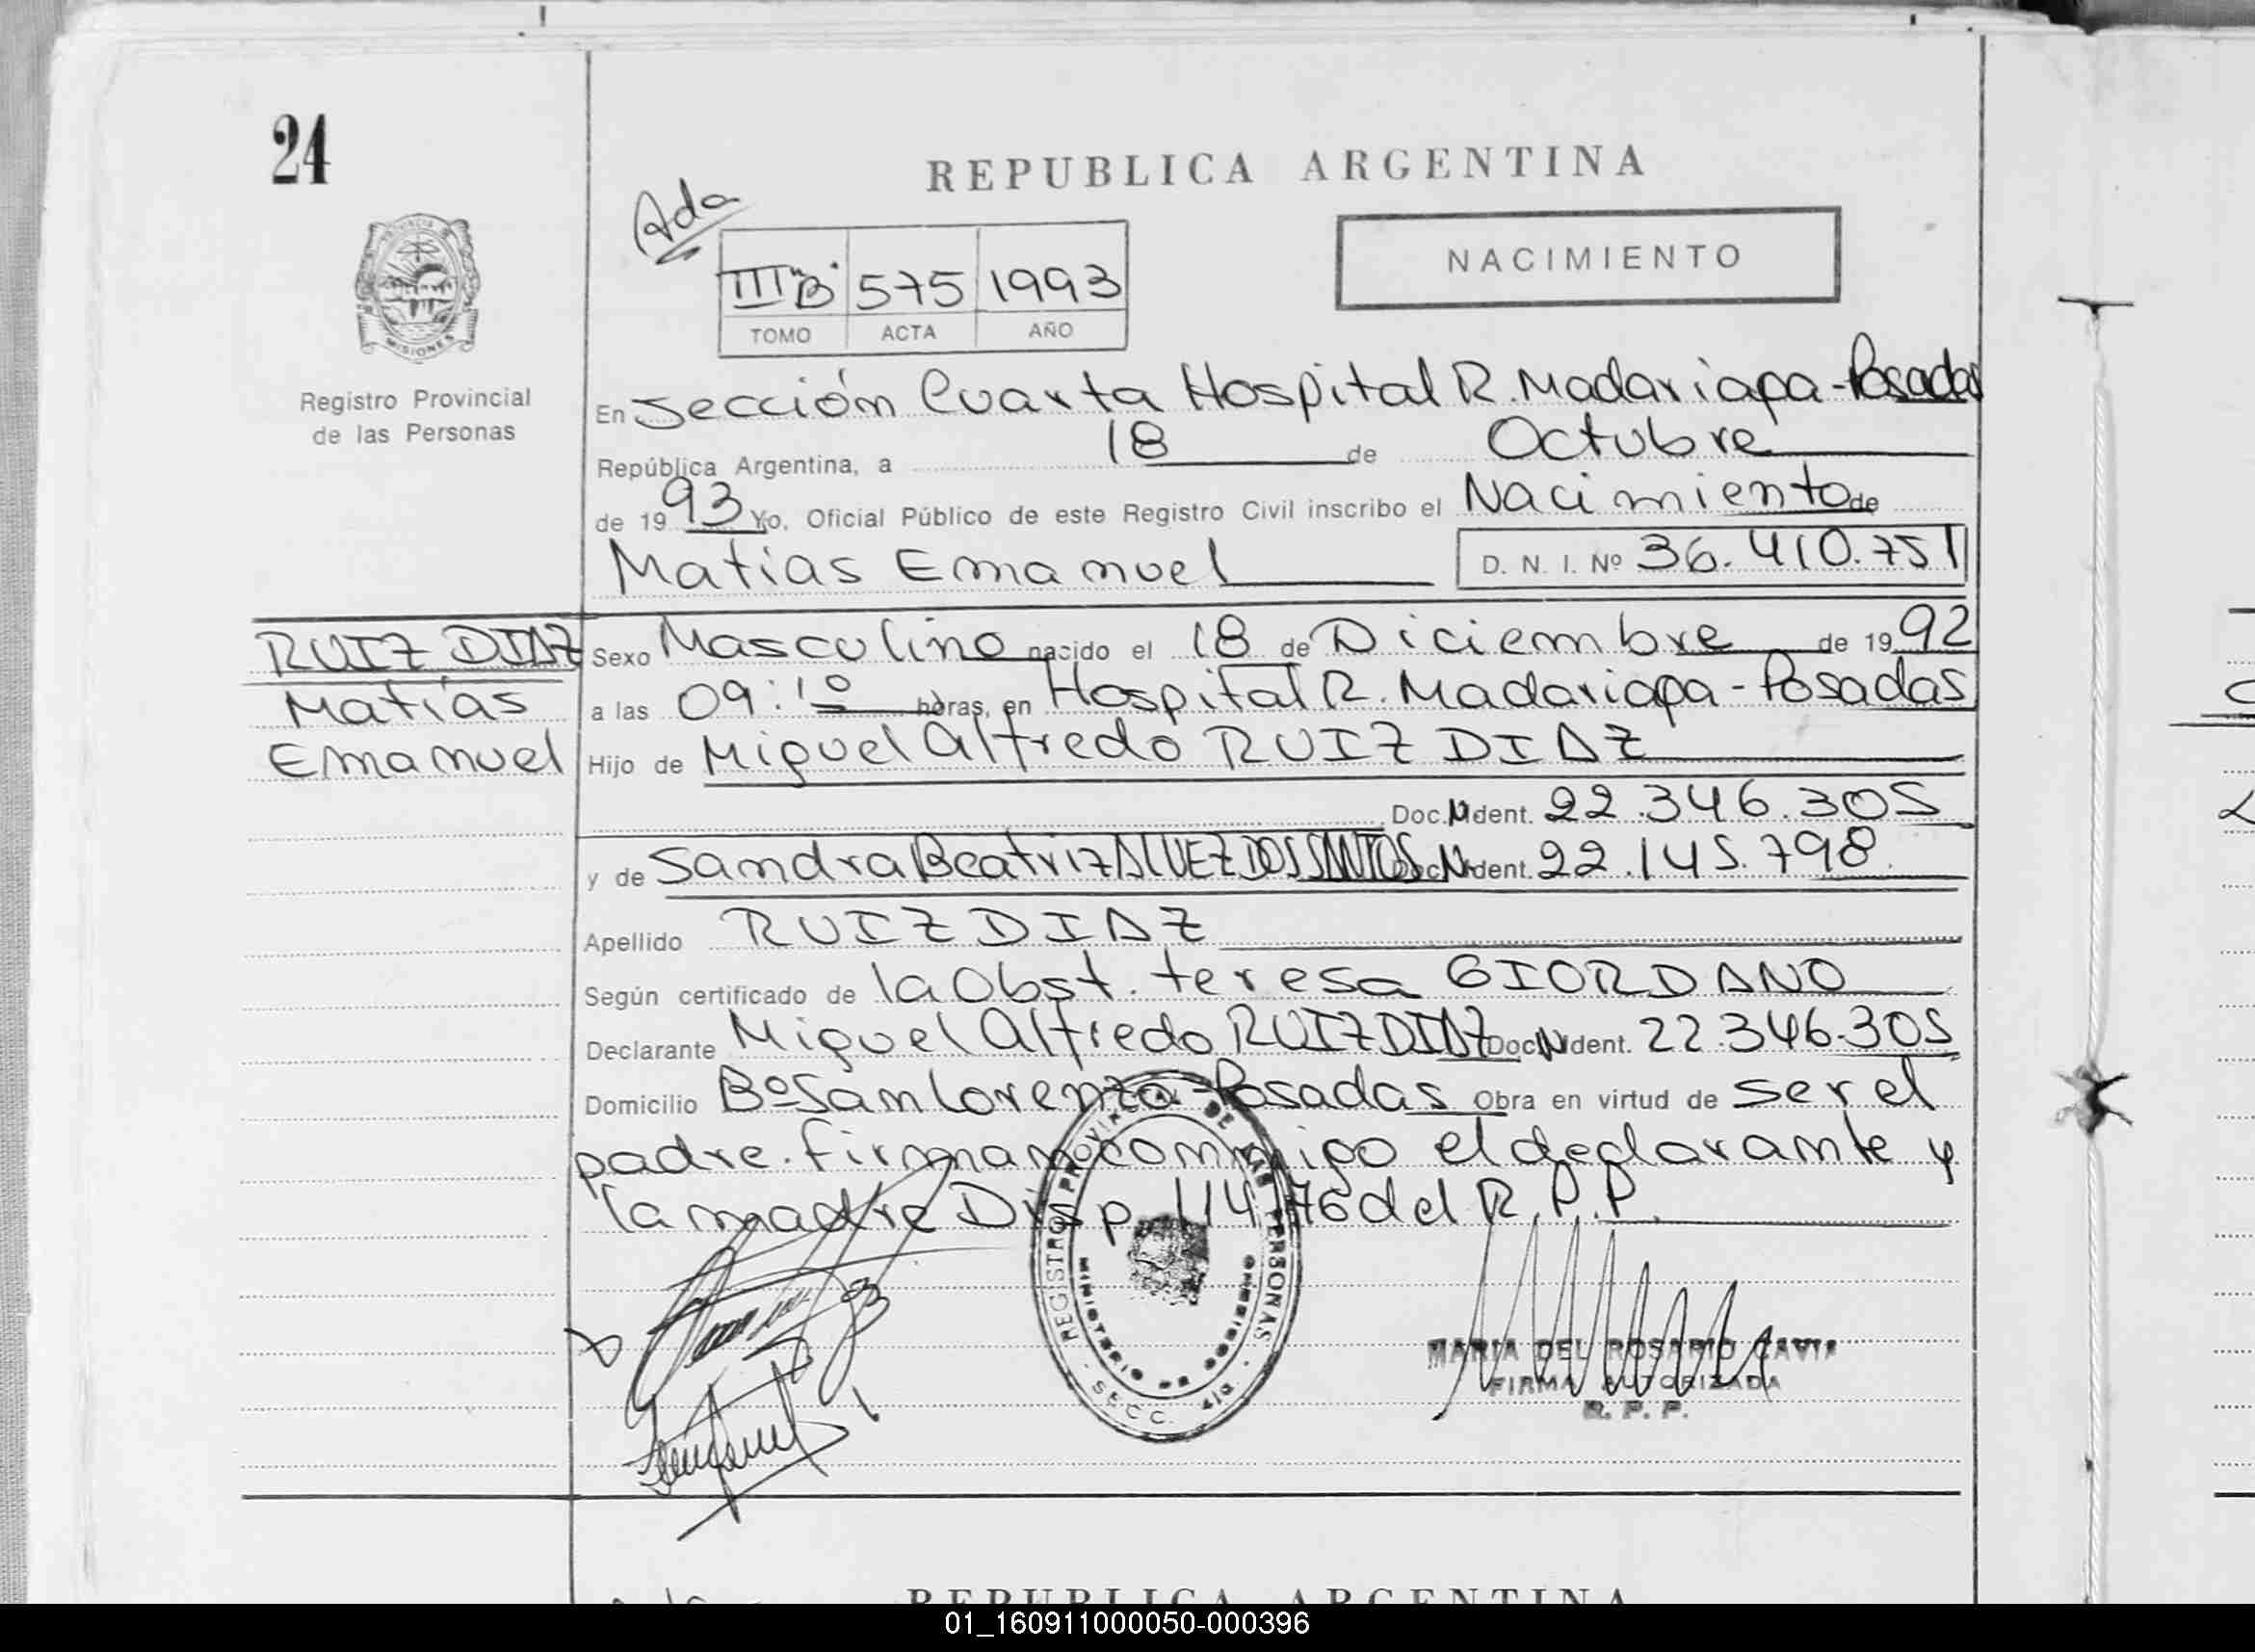 24
REPUBLICA ARGENTINA
Ada
NACIMIENTO
III "B" 575 1993
TOMO ACTA AÑO
PROVINCIA DE
MISIONES
Registro Provincial
de las Personas
En Sección Cuarta Hospital R. Madariaga - Posadas
República Argentina, a 18 de Octubre
de 1993 Yo, Oficial Público de este Registro Civil inscribo el Nacimiento de
Matias Emanuel D. N. I. Nº 36.410.751
RUIZ DIAZ
Matías
Emanuel
Sexo Masculino nacido el 18 de Diciembre de 1992
a las 09:10 horas, en Hospital R. Madariaga - Posadas
Hijo de Miguel Alfredo RUIZ DIAZ
Doc. N Ident. 22.346.305
y de Sandra Beatriz ALVEZ DOS SANTOS Doc. N Ident. 22.145.798
Apellido RUIZ DIAZ
Según certificado de la Obst. teresa GIORDANO
Declarante Miguel Alfredo RUIZ DIAZ Doc. N Ident. 22.346.305
Domicilio Bº San Lorenzo - Posadas Obra en virtud de ser el
padre. firman conmigo el declarante y
la madre Disp. 114/76 del R.P.P.
REGISTRO PROVINCIAL DE LAS PERSONAS
MINISTERIO DE GOBIERNO
SECC. 4ta
MARIA DEL ROSARIO CAVIA
FIRMA AUTORIZADA
R. P. P.
REPUBLICA ARGENTINA
01_160911000050-000396